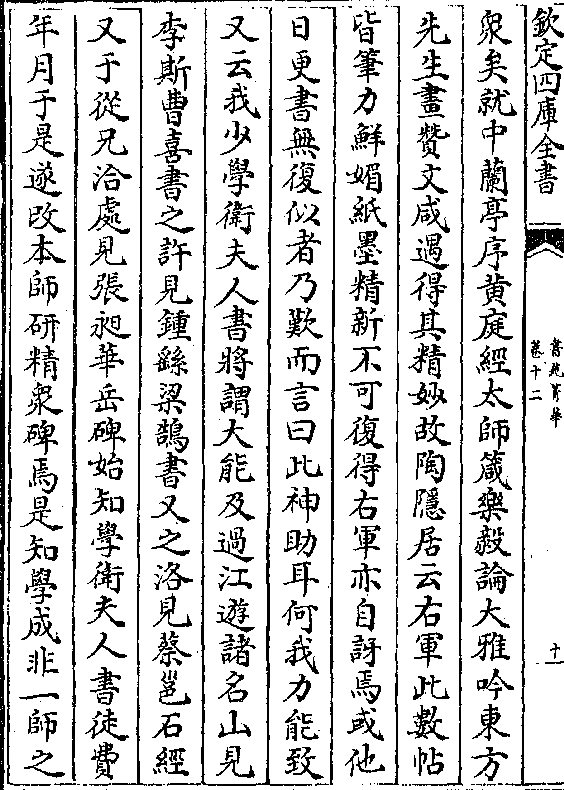 欽定四庫全書
書苑菁華
卷十二
十一
衆矣就中蘭亭序黄庭經太師箴樂毅論大雅吟東方
先生畫贊文咸遇得其精妙故陶隱居云右軍此數帖
皆筆力鮮媚紙墨精新不可復得右軍亦自訝焉或他
日更書無復似者乃歎而言曰此神助耳何我力能致
又云我少學衛夫人書將謂大能及過江遊諸名山見
李斯曹喜書之許見鍾繇梁鵠書又之洛見蔡邕石經
又于從兄洽處見張昶華岳碑始知學衛夫人書徒費
年月于是遂改本師研精衆碑焉是知學成非一師之